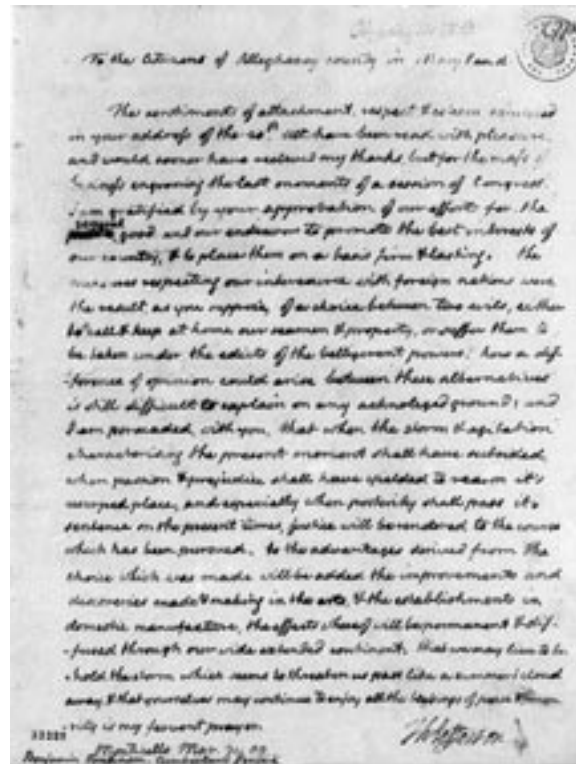 To the Citizens of Alleghaney county in Maryland
The sentiments of attachment, respect & esteem expressed
in your address of the 20th. ult. have been read with pleasure,
and would sooner have recieved my thanks, but for the mass of
business engrossing the last moments of a session of Congress.
I am gratified by your approbation of our efforts for the
general
good and our endeavors to promote the best interests of
our country, & to place them on a basis firm & lasting. the
measures respecting our intercourse with foreign nations were
the result, as you suppose, of a choice between two evils, either
to call & keep at home our seamen & property, or suffer them to
be taken under the edicts of the belligerent powers. how a dif
-ference of opinion could arise between these alternatives
is still difficult to explain on any acknoleged ground; and
I am persuaded, with you, that when the storm & agitation
characterising the present moment shall have subsided,
when passion & prejudice shall have yielded to reason it's
usurped place, and especially when posterity shall pass it's
sentence on the present times, justice will be rendered to the course
which has been pursued. to the advantages derived from the
choice which was made will be added the improvements and
discoveries made & making in the arts, & the establishments in
domestic manufacture, the effects whereof will be permanent & dif-
-fused through our wide extended continent. that we may live to be-
hold the storm which seems to threaten us pass like a summer's cloud
away, & that yourselves may continue to enjoy all the blessings of peace &
-rity is my fervent prayer.
Th: Jefferson
Monticello Mar. 09
Benjamin